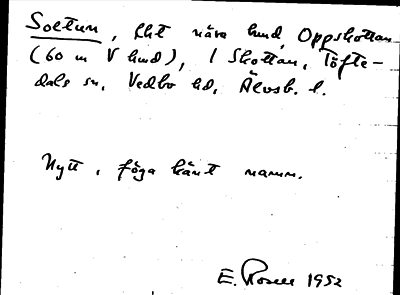 Soltun, lht nära hmd Oppskottan
(60 m V hmd), 1 Skottan, Töfte-
dals sn, Vedbo hd, Älvsb. l.
Nytt, föga känt namn.
E. Rosell 1952